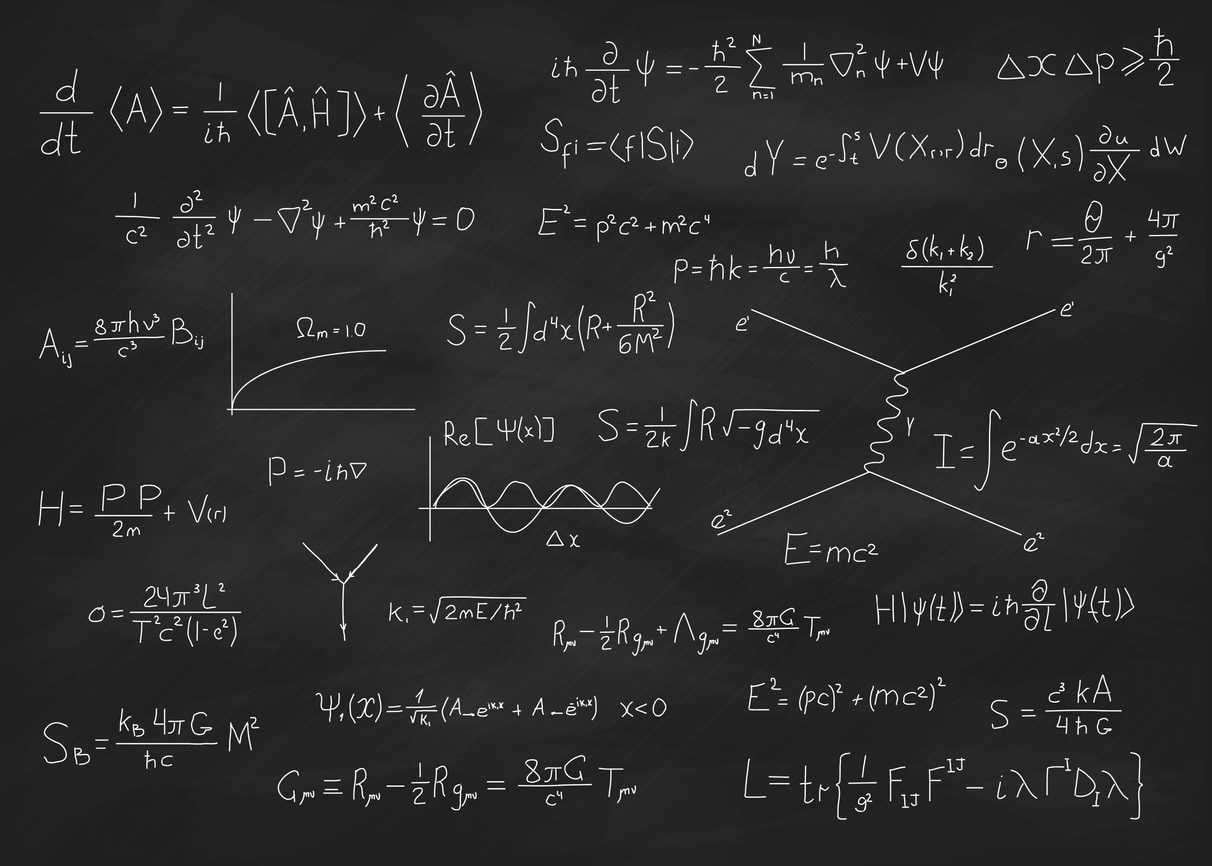 d/dt ⟨A⟩ = 1/iħ ⟨[Â,Ĥ]⟩ + ⟨∂Â/∂t⟩
iħ ∂/∂t ψ = - ħ²/2 ∑ₙ₌₁ᴺ 1/mₙ ∇ₙ² ψ + Vψ
Δx Δp ⩾ ħ/2
S_fi = ⟨f|S|i⟩
dY = e^-∫ₜˢ V(X_r,r) dr_Θ (X,s) ∂u/∂X dW
1/c² ∂²/∂t² ψ - ∇²ψ + m²c²/ħ² ψ = 0
E² = p²c² + m²c⁴
r = Θ/2π + 4π/g²
P = ħk = hν/c = h/λ
δ(k₁+k₂)/k₁²
A_ij = 8πhν³/c³ B_ij
Ω_m = 1.0
S = 1/2 ∫d⁴x (R + R²/6M²)
e¹
e¹
Re[Ψ(x)]
S = 1/2k ∫R √-g d⁴x
γ
I = ∫e^-αx²/2 dx = √2π/α
P = -iħ∇
H = P P/2m + V(r)
Δx
e²
e²
E=mc²
σ = 24π³L²/T²c²(1-e²)
k₁ = √2mE/ħ²
R_μν - 1/2 R g_μν + Λ g_μν = 8πG/c⁴ T_μν
H|ψ(t)⟩ = iħ ∂/∂t |ψ(t)⟩
S_B = k_B 4πG/ħc M²
Ψ₁(x) = 1/√k₁ (A→e^ik₁x + A←e^ik₁x) x<0
E² = (pc)² + (mc²)²
S = c³kA/4ħG
G_μν ≡ R_μν - 1/2 R g_μν = 8πG/c⁴ T_μν
L = tr{1/g² F_IJ F^IJ - iλ Γ^I D_I λ}